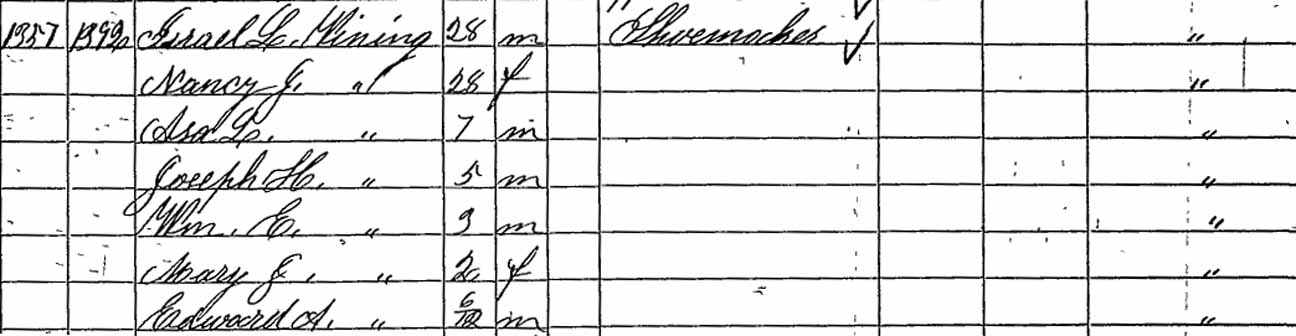 1357 1392 Israel L. Wining 28 m Shoemocher "
Nancy J. " 28 f "
Asa L. " 7 m "
Joseph H. " 5 m "
Wm. E. " 3 m "
Mary J. " 2 f "
Edward A. " 6/12 m "